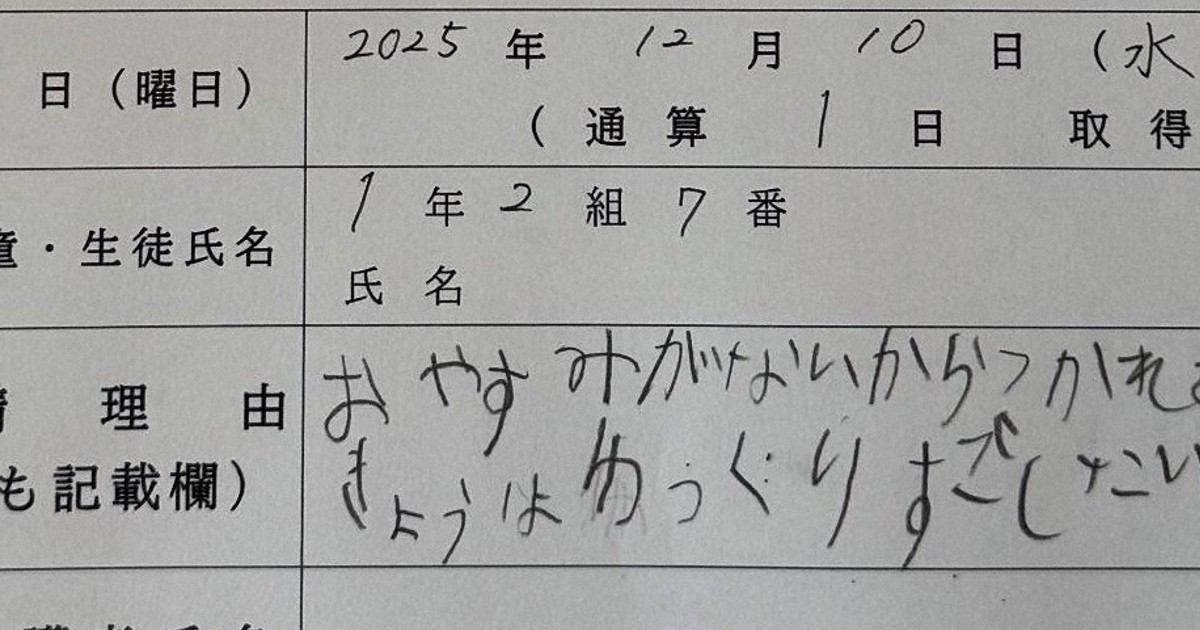 日(曜日)
2025年 12月 10日 (水
(通算 1日 取得
童・生徒氏名
1年2組7番
氏名
理由
も記載欄)
おやすみがないからつかれ
きょうはゆっくりすごしたい